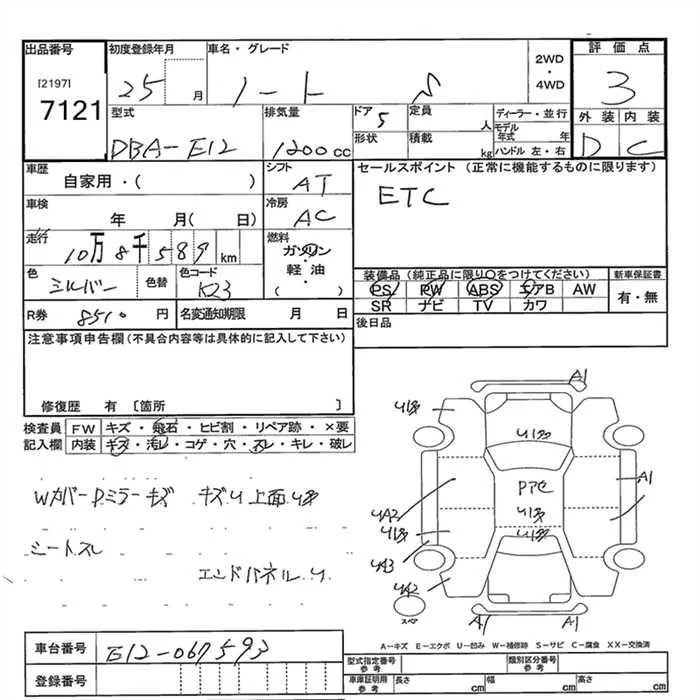 出品番号
[2197]
7121
初度登録年月
25 月
車名・グレード
ノート S
2WD
・
4WD
評価点
3
外装 内装
D C
型式
DBA-E12
排気量
1200 cc
ドア 5
形状
定員
人
積載
kg
ディーラー・並行
モデル年式 年
ハンドル 左・右
車歴
自家用・( )
シフト
AT
セールスポイント (正常に機能するものに限ります)
ETC
車検
年 月( 日)
冷房
AC
走行
10万 8千 589 km
燃料
ガソリン
軽・油
( )
色
シルバー
色替
色コード
K23
装備品 (純正品に限り○をつけてください)
PS PW ABS エアB AW
SR ナビ TV カワ
新車保証書
有・無
R券 8510 円
名変通知期限 月 日
後日品
注意事項申告欄 (不具合内容等は具体的に記入して下さい)
修復歴 有 [箇所 ]
検査員
記入欄
FW キズ・飛石・ヒビ割・リペア跡・×要
内装 キズ・汚レ・コゲ・穴・スレ・キレ・破レ
Wカバー Dミラー キズ
シートスレ
エンドパネル
A1
A1
A1
A1
スペア
A－キズ E－エクボ U－凹み W－補修跡 S－サビ C－腐食 XX－交換済
車台番号 E12-067593
登録番号
型式指定番号
参考
類別区分番号
参考
車庫証明用
参考
長さ cm 幅 cm 高さ cm